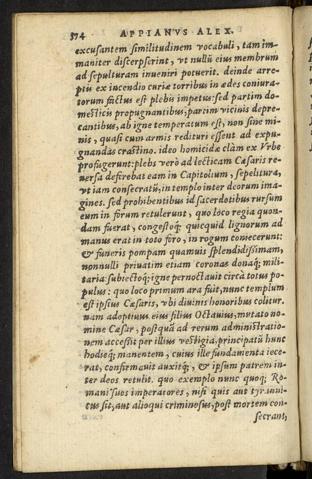 374 APPIANVS ALEX.
excusantem similitudinem vocabuli, tam im-
maniter discerpserint, vt nullũ eius membrum
ad sepulturam inueniri potuerit. deinde arre-
ptis ex incendio curiæ torribus in ædes coniura-
torum factus est plebis impetus: sed partim do-
mesticis propugnantibus, partim vicinis depre-
cantibus, ab igne temperatum est, non sine mi-
nis, quasi cum armis redituri essent ad expu-
gnandas crastino. ideo homicidæ clàm ex Vrbe
profugerunt: plebs verò ad lecticam Cæsaris re-
uersa deferebat eam in Capitolium, sepelitura,
vt iam consecratũ, in templo inter deorum ima-
gines. sed prohibentibus id sacerdotibus rursum
eum in forum retulerunt, quo loco regia quon-
dam fuerat, congestoq́; quicquid lignorum ad
manus erat in toto foro, in rogum coniecerunt:
& funeris pompam quamuis splendidissimam,
nonnulli priuatim etiam coronas donaq́; mili-
taria: subiectoq́; igne pernoctauit circà totus po-
pulus: quo loco primum ara fuit, nunc templum
est ipsius Cæsaris, vbi diuinis honoribus colitur.
nam adoptiuus eius filius Octauius, mutato no-
mine Cæsar, postquã ad rerum administratio-
nem accessit per illius vestigia, principatũ hunc
hodieq́; manentem, cuius ille fundamenta iece-
rat, confirmauit auxitq́;, & ipsum patrem in-
ter deos retulit. quo exemplo nunc quoq; Ro-
mani suos imperatores, nisi quis aut tyranni-
cus sit, aut alioqui criminosus, post mortem con-
secrant,